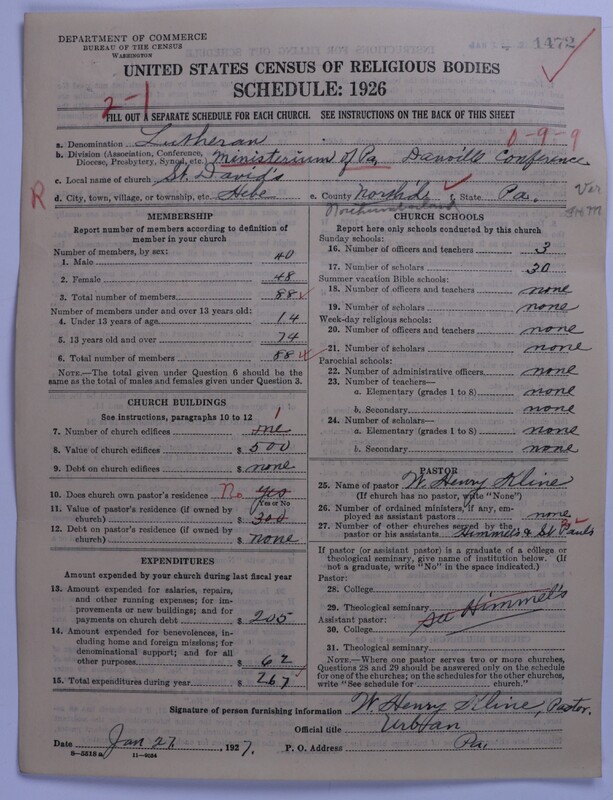 DEPARTMENT OF COMMERCE
BUREAU OF THE CENSUS
WASHINGTON
1472
UNITED STATES CENSUS OF RELIGIOUS BODIES
SCHEDULE: 1926
2-1
FILL OUT A SEPARATE SCHEDULE FOR EACH CHURCH. SEE INSTRUCTIONS ON THE BACK OF THIS SHEET
a. Denomination Lutheran
0-9-9
b. Division (Association, Conference, Diocese, Presbytery, Synod, etc.) Ministerium of Pa. Danville Conference
c. Local name of church St. David's
R
d. City, town, village, or township, etc. Hebe e. County North'd. f. State Pa.
Northumberland
MEMBERSHIP
Report number of members according to definition of
member in your church
Number of members, by sex:
1. Male 40
2. Female 48
3. Total number of members 88
Number of members under and over 13 years old:
4. Under 13 years of age 14
5. 13 years old and over 74
6. Total number of members 88
NOTE.—The total given under Question 6 should be
same as the total of males and females given under Question 3.
CHURCH BUILDINGS
See instructions, paragraphs 10 to 12
1
7. Number of church edifices one
8. Value of church edifices $ 500
9. Debt on church edifices $ none
10. Does church own pastor's residence No yes
Yes or No
11. Value of pastor's residence (if owned by
church) $ 300
12. Debt on pastor's residence (if owned by
church) $ none
EXPENDITURES
Amount expended by your church during last fiscal year
13. Amount expended for salaries, repairs,
and other running expenses; for im-
provements or new buildings; and for
payments on church debt $ 205
14. Amount expended for benevolences, in-
cluding home and foreign missions; for
denominational support; and for all
other purposes $ 62
15. Total expenditures during year $ 267
CHURCH SCHOOLS
Report here only schools conducted by this church
Sunday schools:
16. Number of officers and teachers 3
17. Number of scholars 30
Summer vacation Bible schools:
18. Number of officers and teachers none
19. Number of scholars none
Week-day religious schools:
20. Number of officers and teachers none
21. Number of scholars none
Parochial schools:
22. Number of administrative officers none
23. Number of teachers—
a. Elementary (grades 1 to 8) none
b. Secondary none
24. Number of scholars—
a. Elementary (grades 1 to 8) none
b. Secondary none
PASTOR
25. Name of pastor W. Henry Kline
(If church has no pastor, write "None")
26. Number of ordained ministers, if any, em-
ployed as assistant pastors none
27. Number of other churches served by the
pastor or his assistants Himmel's & St. Paul's
If pastor (or assistant pastor) is a graduate of a college or
theological seminary, give name of institution below. (If
not a graduate, write "No" in the space indicated.)
Pastor:
28. College
29. Theological seminary See Himmel's
Assistant pastor:
30. College
31. Theological seminary
NOTE.—Where one pastor serves two or more churches,
Questions 28 and 29 should be answered only on the schedule
for one of the churches; on the schedules for the other churches,
write "See schedule for church."
Signature of person furnishing information W. Henry Kline, Pastor.
Official title Urban
Date Jan 27, 1927. P. O. Address Pa.
8-5518a 11-9024